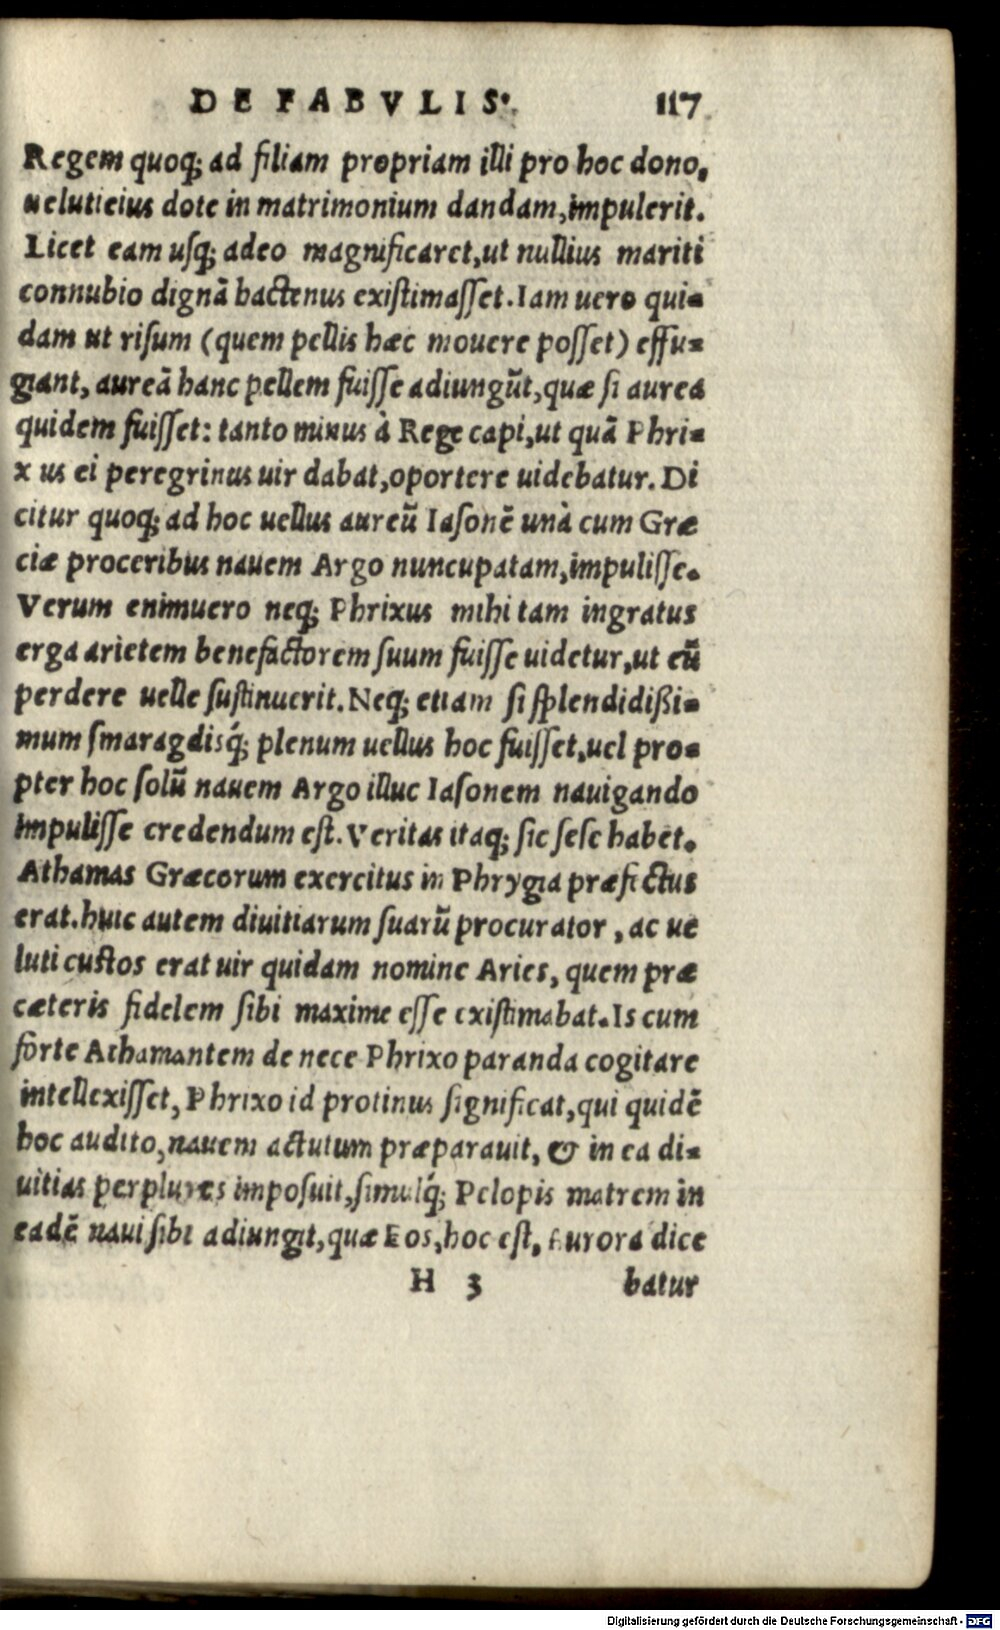 DE FABVLIS. 117
Regem quoq; ad filiam propriam illi pro hoc dono,
ueluti eius dote in matrimonium dandam, impulerit.
Licet eam uſq; adeo magnificaret, ut nullius mariti
connubio dignā hactenus exiſtimaſſet. Iam uero qui-
dam ut riſum (quem pellis hæc mouere poſſet) effu-
giant, aureā hanc pellem fuiſſe adiungūt, quæ ſi aurea
quidem fuiſſet: tanto minus à Rege capi, ut quā Phri-
x us ei peregrinus uir dabat, oportere uidebatur. Di
citur quoq; ad hoc uellus aureū Iaſonē unà cum Græ
ciæ proceribus nauem Argo nuncupatam, impuliſſe.
Verum enimuero neq; Phrixus mihi tam ingratus
erga arietem benefactorem ſuum fuiſſe uidetur, ut eū
perdere uelle ſuſtinuerit. Neq; etiam ſi ſplendidißi-
mum ſmaragdisq́; plenum uellus hoc fuiſſet, uel pro-
pter hoc ſolū nauem Argo illuc Iaſonem nauigando
impuliſſe credendum eſt. Veritas itaq; ſic ſeſe habet.
Athamas Græcorum exercitus in Phrygia præfectus
erat. huic autem diuitiarum ſuarū procurator, ac ue
luti cuſtos erat uir quidam nomine Aries, quem præ
cæteris fidelem ſibi maxime eſſe exiſtimabat. Is cum
forte Athamantem de nece Phrixo paranda cogitare
intellexiſſet, Phrixo id protinus ſignificat, qui quidē
hoc audito, nauem actutum præparauit, & in ea di-
uitias perplures impoſuit, ſimulq́; Pelopis matrem in
eadē naui ſibi adiungit, quæ Eos, hoc eſt, Aurora dice
H 3 batur
Digitalisierung gefördert durch die Deutsche Forschungsgemeinschaft - DFG